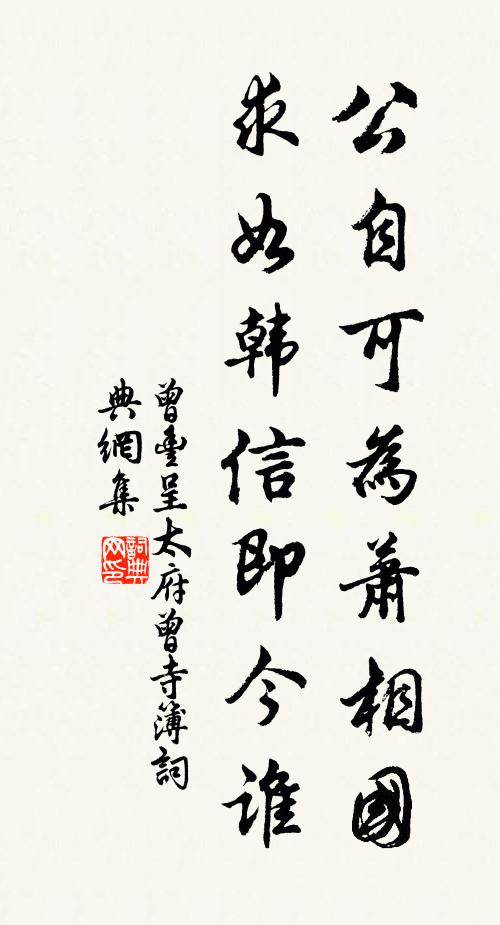 公自可為蕭相國
求如韓信即今誰
曾豐呈太府曾寺簿詞
典網集
詞典网印